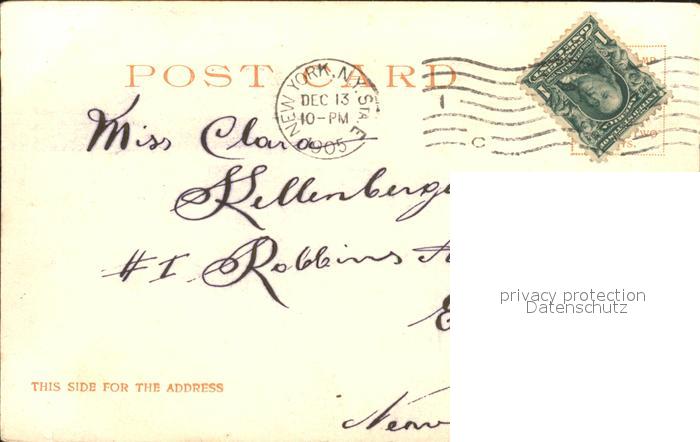 POST CARD
NEW YORK, N.Y. STA. E
DEC 13
10-PM
1905
C
TWO
Miss Clara
Kellenberge
#1 Robbins A
E
New
privacy protection
Datenschutz
THIS SIDE FOR THE ADDRESS